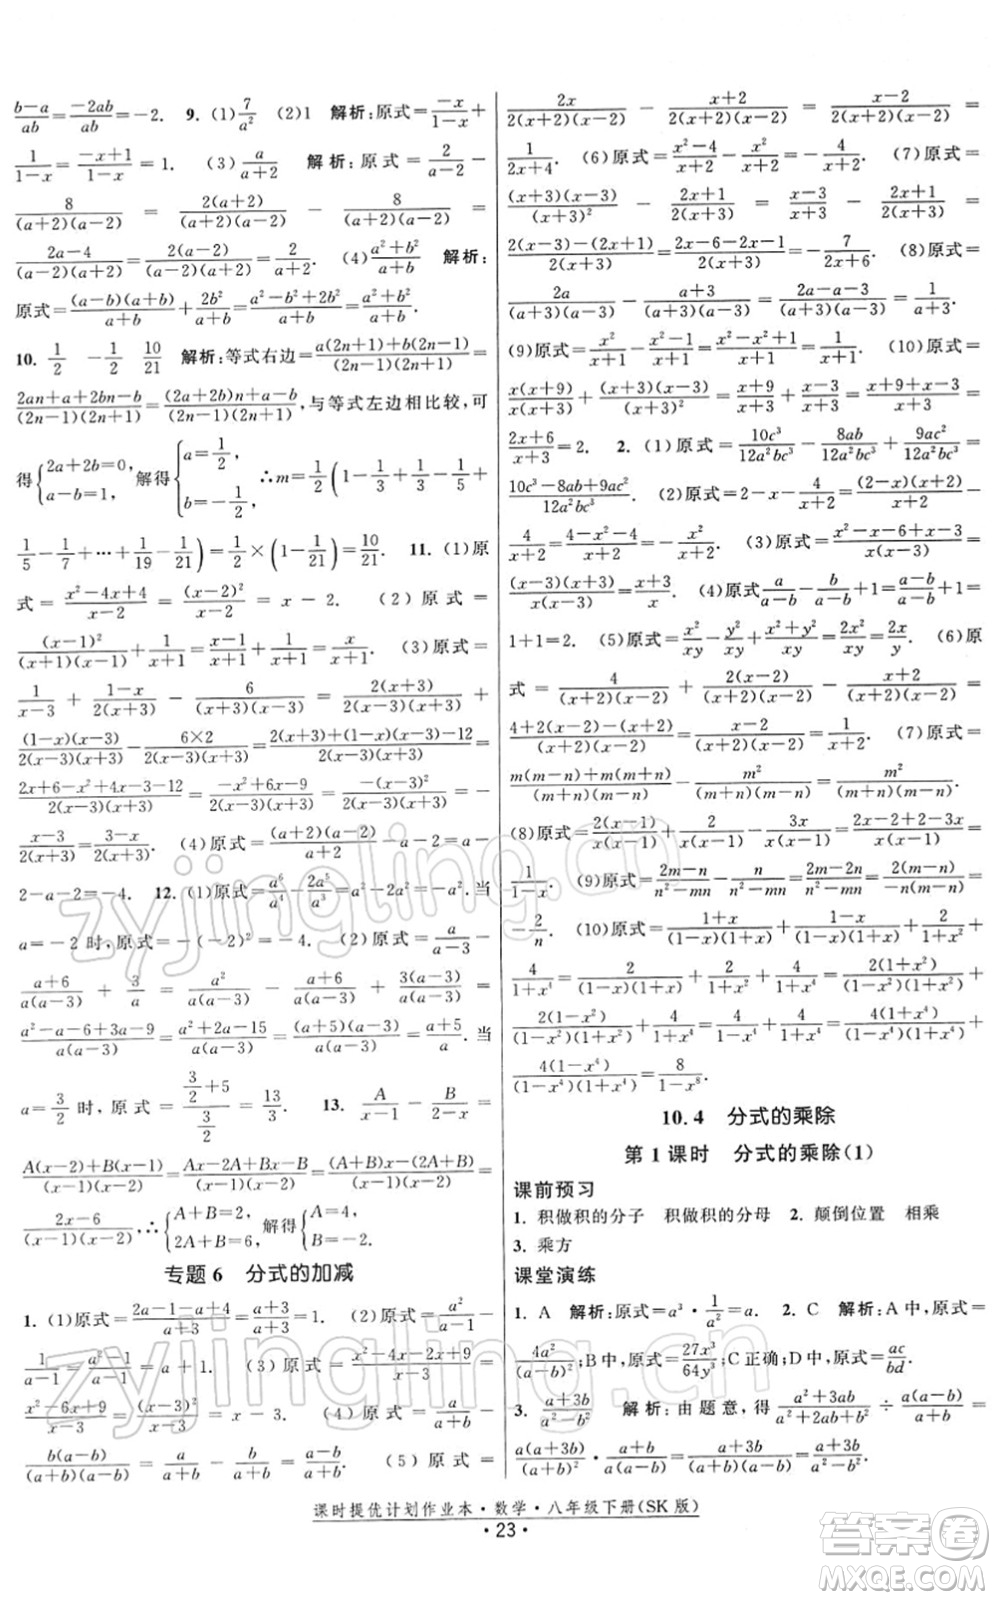 $\frac{b-a}{ab}=\frac{-2ab}{ab}=-2.$ 9. (1)$\frac{7}{a^2}$ (2)1 解析:原式=$\frac{-x}{1-x}+$
$\frac{1}{1-x}=\frac{-x+1}{1-x}=1.$ (3)$\frac{a}{a+2}$ 解析:原式=$\frac{2}{a-2}-$
$\frac{8}{(a+2)(a-2)}=\frac{2(a+2)}{(a+2)(a-2)}-\frac{8}{(a+2)(a-2)}=$
$\frac{2a-4}{(a-2)(a+2)}=\frac{2(a-2)}{(a-2)(a+2)}=\frac{2}{a+2}.$ (4)$\frac{a^2+b^2}{a+b}$ 解析:
原式=$\frac{(a-b)(a+b)}{a+b}+\frac{2b^2}{a+b}=\frac{a^2-b^2+2b^2}{a+b}=\frac{a^2+b^2}{a+b}.$
10. $\frac{1}{2}$ $-\frac{1}{2}$ $\frac{10}{21}$ 解析:等式右边=$\frac{a(2n+1)+b(2n-1)}{(2n-1)(2n+1)}=$
$\frac{2an+a+2bn-b}{(2n-1)(2n+1)}=\frac{(2a+2b)n+a-b}{(2n-1)(2n+1)}$,与等式左边相比较,可
得$\begin{cases}2a+2b=0,\\a-b=1,\end{cases}$解得$\begin{cases}a=\frac{1}{2},\\b=-\frac{1}{2}.\end{cases}$∴$m=\frac{1}{2}\left(1-\frac{1}{3}+\frac{1}{3}-\frac{1}{5}+\right.$
$\left.\frac{1}{5}-\frac{1}{7}+\cdots+\frac{1}{19}-\frac{1}{21}\right)=\frac{1}{2}\times\left(1-\frac{1}{21}\right)=\frac{10}{21}.$ 11. (1)原
式=$\frac{x^2-4x+4}{x-2}=\frac{(x-2)^2}{x-2}=x-2.$ (2)原式=
$\frac{(x-1)^2}{(x+1)(x-1)}+\frac{1}{x+1}=\frac{x-1}{x+1}+\frac{1}{x+1}=\frac{x}{x+1}.$ (3)原式=
$\frac{1}{x-3}+\frac{1-x}{2(x+3)}-\frac{6}{(x+3)(x-3)}=\frac{2(x+3)}{2(x-3)(x+3)}+$
$\frac{(1-x)(x-3)}{2(x-3)(x+3)}-\frac{6×2}{2(x-3)(x+3)}=\frac{2(x+3)+(1-x)(x-3)-12}{2(x-3)(x+3)}=$
$\frac{2x+6-x^2+4x-3-12}{2(x-3)(x+3)}=\frac{-x^2+6x-9}{2(x-3)(x+3)}=\frac{-(x-3)^2}{2(x-3)(x+3)}=$
$-\frac{x-3}{2(x+3)}=\frac{3-x}{2(x+3)}.$ (4)原式=$\frac{(a+2)(a-2)}{a+2}-a-2=a-$
$2-a-2=-4.$ 12. (1)原式=$\frac{a^6}{a^4}-\frac{2a^5}{a^3}=a^2-2a^2=-a^2.$当
$a=-2$时,原式=$-(-2)^2=-4.$ (2)原式=$\frac{a}{a-3}-$
$\frac{a+6}{a(a-3)}+\frac{3}{a}=\frac{a^2}{a(a-3)}-\frac{a+6}{a(a-3)}+\frac{3(a-3)}{a(a-3)}=$
$\frac{a^2-a-6+3a-9}{a(a-3)}=\frac{a^2+2a-15}{a(a-3)}=\frac{(a+5)(a-3)}{a(a-3)}=\frac{a+5}{a}.$当
$a=\frac{3}{2}$时,原式=$\frac{\frac{3}{2}+5}{\frac{3}{2}}=\frac{13}{3}.$ 13. $\frac{A}{x-1}-\frac{B}{2-x}=$
$\frac{A(x-2)+B(x-1)}{(x-1)(x-2)}=\frac{Ax-2A+Bx-B}{(x-1)(x-2)}=\frac{(A+B)x-(2A+B)}{(x-1)(x-2)}=$
$\frac{2x-6}{(x-1)(x-2)}$,∴$\begin{cases}A+B=2,\\2A+B=6,\end{cases}$解得$\begin{cases}A=4,\\B=-2.\end{cases}$
专题6 分式的加减
1. (1)原式=$\frac{2a-1-a+4}{a+3}=\frac{a+3}{a+3}=1.$ (2)原式=$\frac{a^2}{a-1}-$
$\frac{1}{a-1}=\frac{a^2-1}{a-1}=a+1.$ (3)原式=$\frac{x^2-4x-2x+9}{x-3}=$
$\frac{x^2-6x+9}{x-3}=\frac{(x-3)^2}{x-3}=x-3.$ (4)原式=$\frac{a}{a+b}-$
$\frac{b(a-b)}{(a+b)(a-b)}=\frac{a}{a+b}-\frac{b}{a+b}=\frac{a-b}{a+b}.$ (5)原式=
$\frac{2x}{2(x+2)(x-2)}-\frac{x+2}{2(x+2)(x-2)}=\frac{x-2}{2(x+2)(x-2)}=$
$\frac{1}{2x+4}.$ (6)原式=$\frac{x^2-4}{x+2}-\frac{x^2}{x+2}=-\frac{4}{x+2}.$ (7)原式=
$\frac{(x+3)(x-3)}{(x+3)^2}-\frac{2x+1}{2(x+3)}=\frac{x-3}{x+3}-\frac{2x+1}{2(x+3)}=$
$\frac{2(x-3)-(2x+1)}{2(x+3)}=\frac{2x-6-2x-1}{2(x+3)}=-\frac{7}{2x+6}.$ (8)原式=
$\frac{2a}{(a+3)(a-3)}-\frac{a+3}{(a+3)(a-3)}=\frac{2a-a-3}{(a+3)(a-3)}=\frac{1}{a+3}.$
(9)原式=$\frac{x^2}{x+1}-\frac{x^2-1}{x+1}=\frac{x^2-x^2+1}{x+1}=\frac{1}{x+1}.$ (10)原式=
$\frac{x(x+9)}{x(x+3)}+\frac{(x+3)(x-3)}{(x+3)^2}=\frac{x+9}{x+3}+\frac{x-3}{x+3}=\frac{x+9+x-3}{x+3}=$
$\frac{2x+6}{x+3}=2.$ 2. (1)原式=$\frac{10c^3}{12a^2bc^3}-\frac{8ab}{12a^2bc^3}+\frac{9ac^2}{12a^2bc^3}=$
$\frac{10c^3-8ab+9ac^2}{12a^2bc^3}.$ (2)原式=$2-x-\frac{4}{x+2}=\frac{(2-x)(x+2)}{x+2}-$
$\frac{4}{x+2}=\frac{4-x^2-4}{x+2}=-\frac{x^2}{x+2}.$ (3)原式=$\frac{x^2-x-6+x-3}{x(x-3)}=$
$\frac{(x-3)(x+3)}{x(x-3)}=\frac{x+3}{x}.$ (4)原式=$\frac{a}{a-b}-\frac{b}{a-b}+1=\frac{a-b}{a-b}+1=$
$1+1=2.$ (5)原式=$\frac{x^2}{xy}-\frac{y^2}{xy}+\frac{x^2+y^2}{xy}=\frac{2x^2}{xy}=\frac{2x}{y}.$ (6)原
式=$\frac{4}{(x+2)(x-2)}+\frac{2(x-2)}{(x+2)(x-2)}-\frac{x+2}{(x+2)(x-2)}=$
$\frac{4+2(x-2)-(x+2)}{(x+2)(x-2)}=\frac{x-2}{(x+2)(x-2)}=\frac{1}{x+2}.$ (7)原式=
$\frac{m(m-n)}{(m+n)(m-n)}-\frac{m^2}{(m+n)(m-n)}=-\frac{mn}{(m+n)(m-n)}.$
(8)原式=$\frac{2(x-1)}{x(x-1)}+\frac{2}{x(x-1)}-\frac{3x}{x(x-1)}=\frac{2x-2+2-3x}{x(x-1)}=$
$\frac{1}{1-x}.$ (9)原式=$\frac{2m}{n^2-mn}-\frac{2n}{n^2-mn}=\frac{2m-2n}{n^2-mn}=\frac{2(m-n)}{-n(m-n)}=$
$-\frac{2}{n}.$ (10)原式=$\frac{1+x}{(1-x)(1+x)}+\frac{1-x}{(1-x)(1+x)}+\frac{2}{1+x^2}+$
$\frac{4}{1+x^4}=\frac{2}{(1-x)(1+x)}+\frac{2}{1+x^2}+\frac{4}{1+x^4}=\frac{2(1+x^2)}{(1-x^2)(1+x^2)}+$
$\frac{2(1-x^2)}{(1-x^2)(1+x^2)}+\frac{4}{1+x^4}=\frac{4}{1-x^4}+\frac{4}{1+x^4}=\frac{4(1+x^4)}{(1-x^4)(1+x^4)}+$
$\frac{4(1-x^4)}{(1-x^4)(1+x^4)}=\frac{8}{1-x^8}.$
10.4 分式的乘除
第1课时 分式的乘除(1)
课前预习
1. 积做积的分子 积做积的分母 2. 颠倒位置 相乘
3. 乘方
课堂演练
1. A 解析:原式=$a^3\cdot\frac{1}{a^2}=a.$ 2. C 解析:A中,原式=
$\frac{4a^2}{(a-b)^2}$;B中,原式=$\frac{27x^3}{64y^3}$;C正确;D中,原式=$\frac{ac}{bd}.$
3. $\frac{a+3b}{a^2-b^2}$ 解析:由题意,得$\frac{a^2+3ab}{a^2+2ab+b^2}\div\frac{a(a-b)}{a+b}=$
$\frac{a(a+3b)}{(a+b)^2}\cdot\frac{a+b}{a(a-b)}=\frac{a+3b}{(a+b)(a-b)}=\frac{a+3b}{a^2-b^2}.$
课时提优计划作业本·数学·八年级下册(SK版)
· 23 ·
zyjingling.cn
zyjingling.cn
答案圈
MXQE.COM